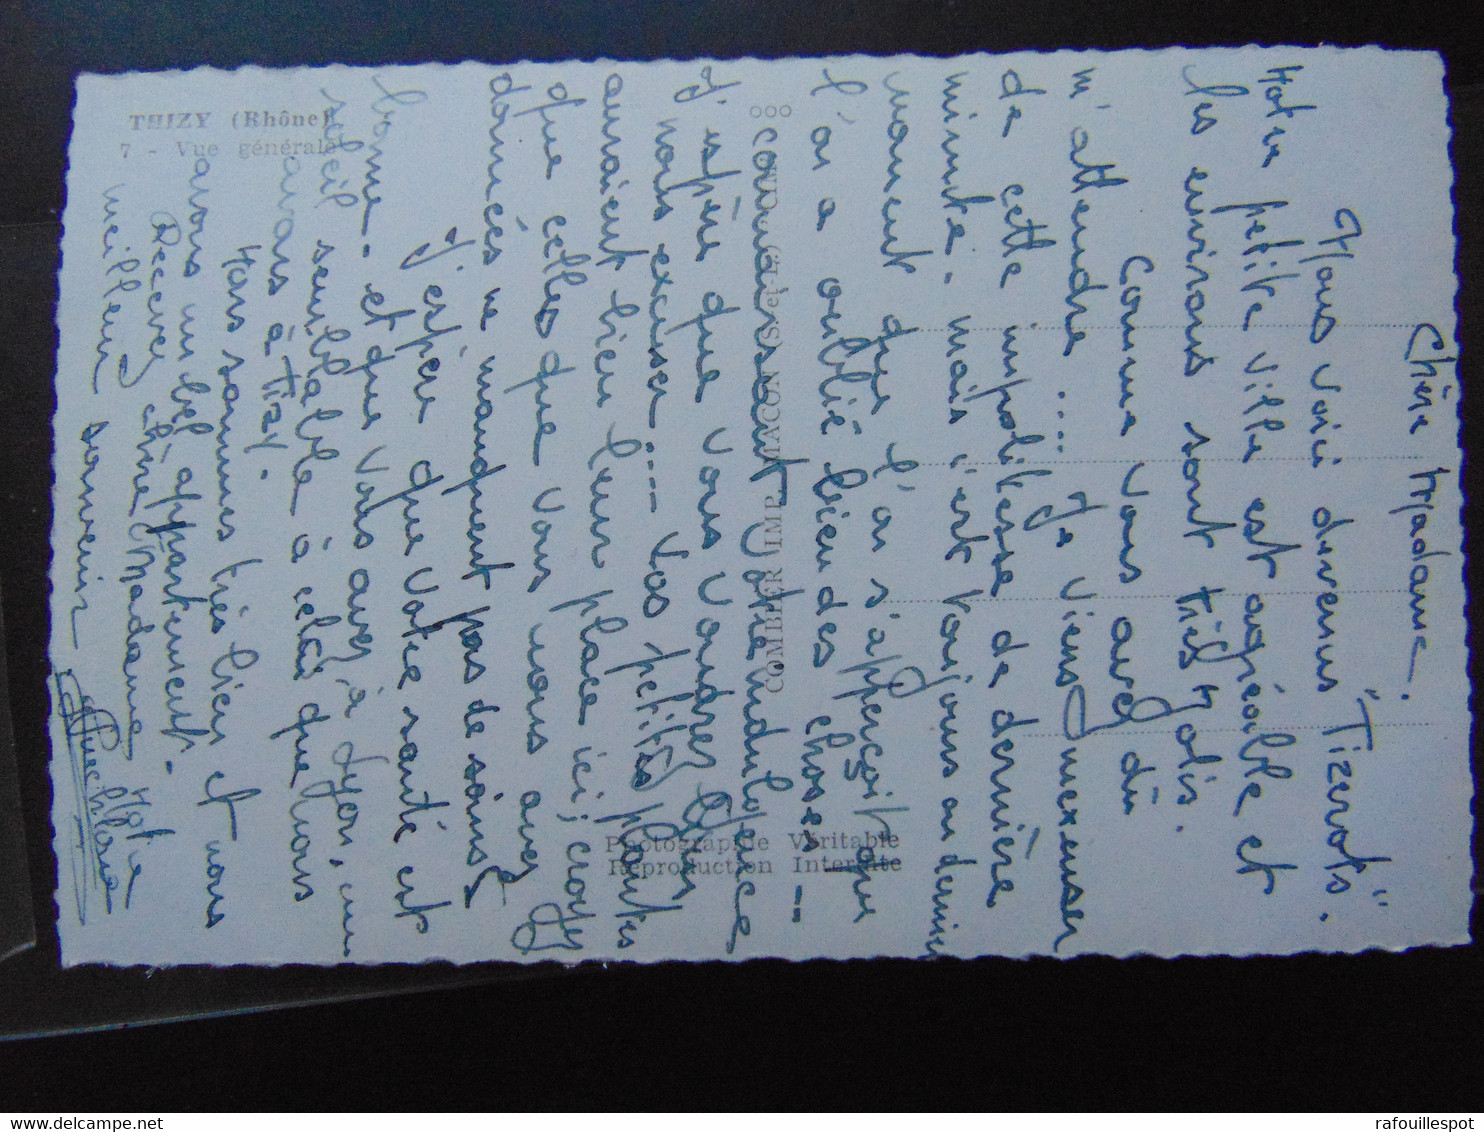 THIZY (Rhône)
7 - Vue générale
COMBIER IMP. MACON (S.-et-L.)
Photographie Véritable
Reproduction Interdite
Chère Madame.
Nous voici devenus "Tizerots".
Notre petite ville est agréable et
les environs sont très jolis.
Comme vous avez dû
m'attendre .... Je viens m'excuser
de cette impolitesse de dernière
minute. mais c'est toujours au dernier
moment que l'on s'apperçoit que
l'on a oublié bien des choses --
connaissant votre indulgence
j'espère que vous voudrez bien
nous excuser.... Vos petites plantes
auraient bien leur place ici; croyez
que celles que vous nous avez
données ne manquent pas de soins.
J'espère que votre santé est
bonne. et que vous avez, à Lyon, un
soleil semblable à celui que nous
avons à Tizy.
Nous sommes très bien et nous
avons un bel appartement.
Recevez chère Madame notre
meilleur souvenir
rafouillespot